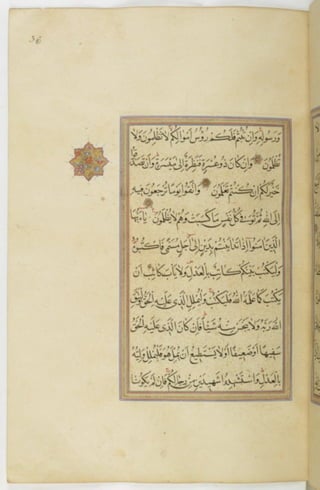 36
وَرَسُولِهِ وَإِنْ تُبْتُمْ فَلَكُمْ رُؤُسُ أَمْوَالِكُمْ لَا تَظْلِمُونَ وَلَا
تُظْلَمُونَ وَإِنْ كَانَ ذُو عُسْرَةٍ فَنَظِرَةٌ إِلَى مَيْسَرَةٍ وَأَنْ تَصَدَّقُوا
خَيْرٌ لَكُمْ إِنْ كُنْتُمْ تَعْلَمُونَ وَاتَّقُوا يَوْمًا تُرْجَعُونَ فِيهِ
إِلَى اللَّهِ ثُمَّ تُوَفَّى كُلُّ نَفْسٍ مَا كَسَبَتْ وَهُمْ لَا يُظْلَمُونَ يَاءَيُّهَا
الَّذِينَ آمَنُوا إِذَا تَدَايَنْتُمْ بِدَيْنٍ إِلَى أَجَلٍ مُسَمًّى فَاكْتُبُوهُ
وَلْيَكْتُبْ بَيْنَكُمْ كَاتِبٌ بِالْعَدْلِ وَلَا يَأْبَ كَاتِبٌ أَنْ
يَكْتُبَ كَمَا عَلَّمَهُ اللَّهُ فَلْيَكْتُبْ وَلْيُمْلِلِ الَّذِي عَلَيْهِ الْحَقُّ وَلْيَتَّقِ
اللَّهَ رَبَّهُ وَلَا يَبْخَسْ مِنْهُ شَيْئًا فَإِنْ كَانَ الَّذِي عَلَيْهِ الْحَقُّ
سَفِيهًا أَوْ ضَعِيفًا أَوْ لَا يَسْتَطِيعُ أَنْ يُمِلَّ هُوَ فَلْيُمْلِلْ وَلِيُّهُ
بِالْعَدْلِ وَاسْتَشْهِدُوا شَهِيدَيْنِ مِنْ رِجَالِكُمْ فَإِنْ لَمْ يَكُونَا